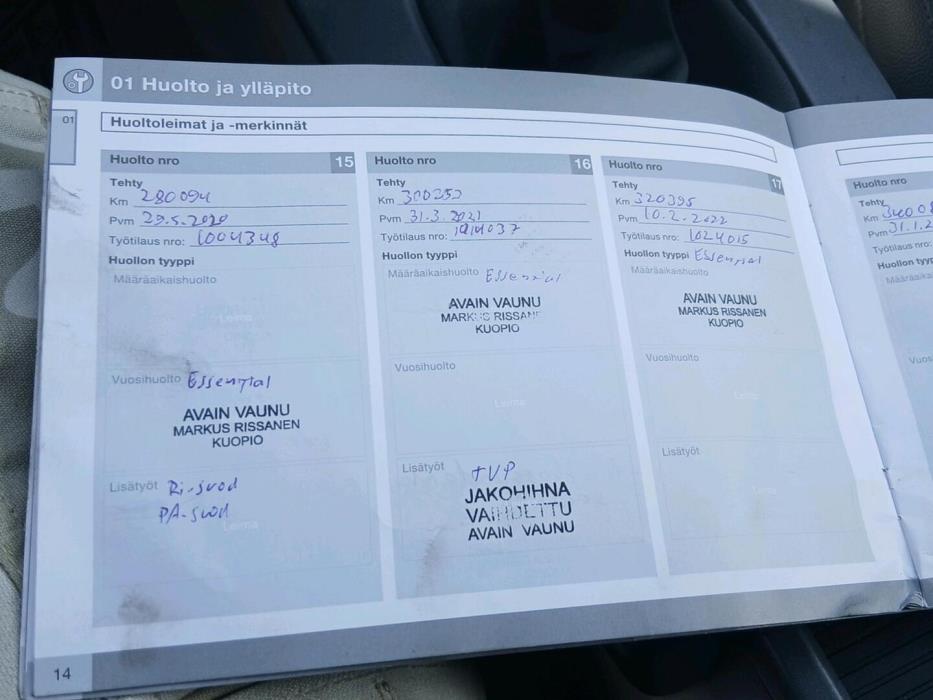 01 Huolto ja ylläpito
01
Huoltoleimat ja -merkinnät
Huolto nro 15
Tehty
Km 280094
Pvm 29.5.2020
Työtilaus nro: 1004348
Huollon tyyppi
Määräaikaishuolto
Leima
Vuosihuolto Essential
AVAIN VAUNU
MARKUS RISSANEN
KUOPIO
Lisätyöt Ri-suod
PA-suod
Leima
Huolto nro 16
Tehty
Km 300252
Pvm 31.3.2021
Työtilaus nro: 1014037
Huollon tyyppi
Määräaikaishuolto Essential
AVAIN VAUNU
MARKUS RISSANE
KUOPIO
Vuosihuolto
Leima
Lisätyöt TVP
JAKOHIHNA
VAIHDETTU
AVAIN VAUNU
Huolto nro 17
Tehty
Km 320395
Pvm 10.2.2022
Työtilaus nro: 1024015
Huollon tyyppi Essential
Määräaikaishuolto
AVAIN VAUNU
MARKUS RISSANEN
KUOPIO
Vuosihuolto
Leima
Lisätyöt
Huolto nro
Tehty
Km 34008
Pvm 31.1.2
Työtilaus nro:
Huollon tyypp
Määräaikais
Vuos
14